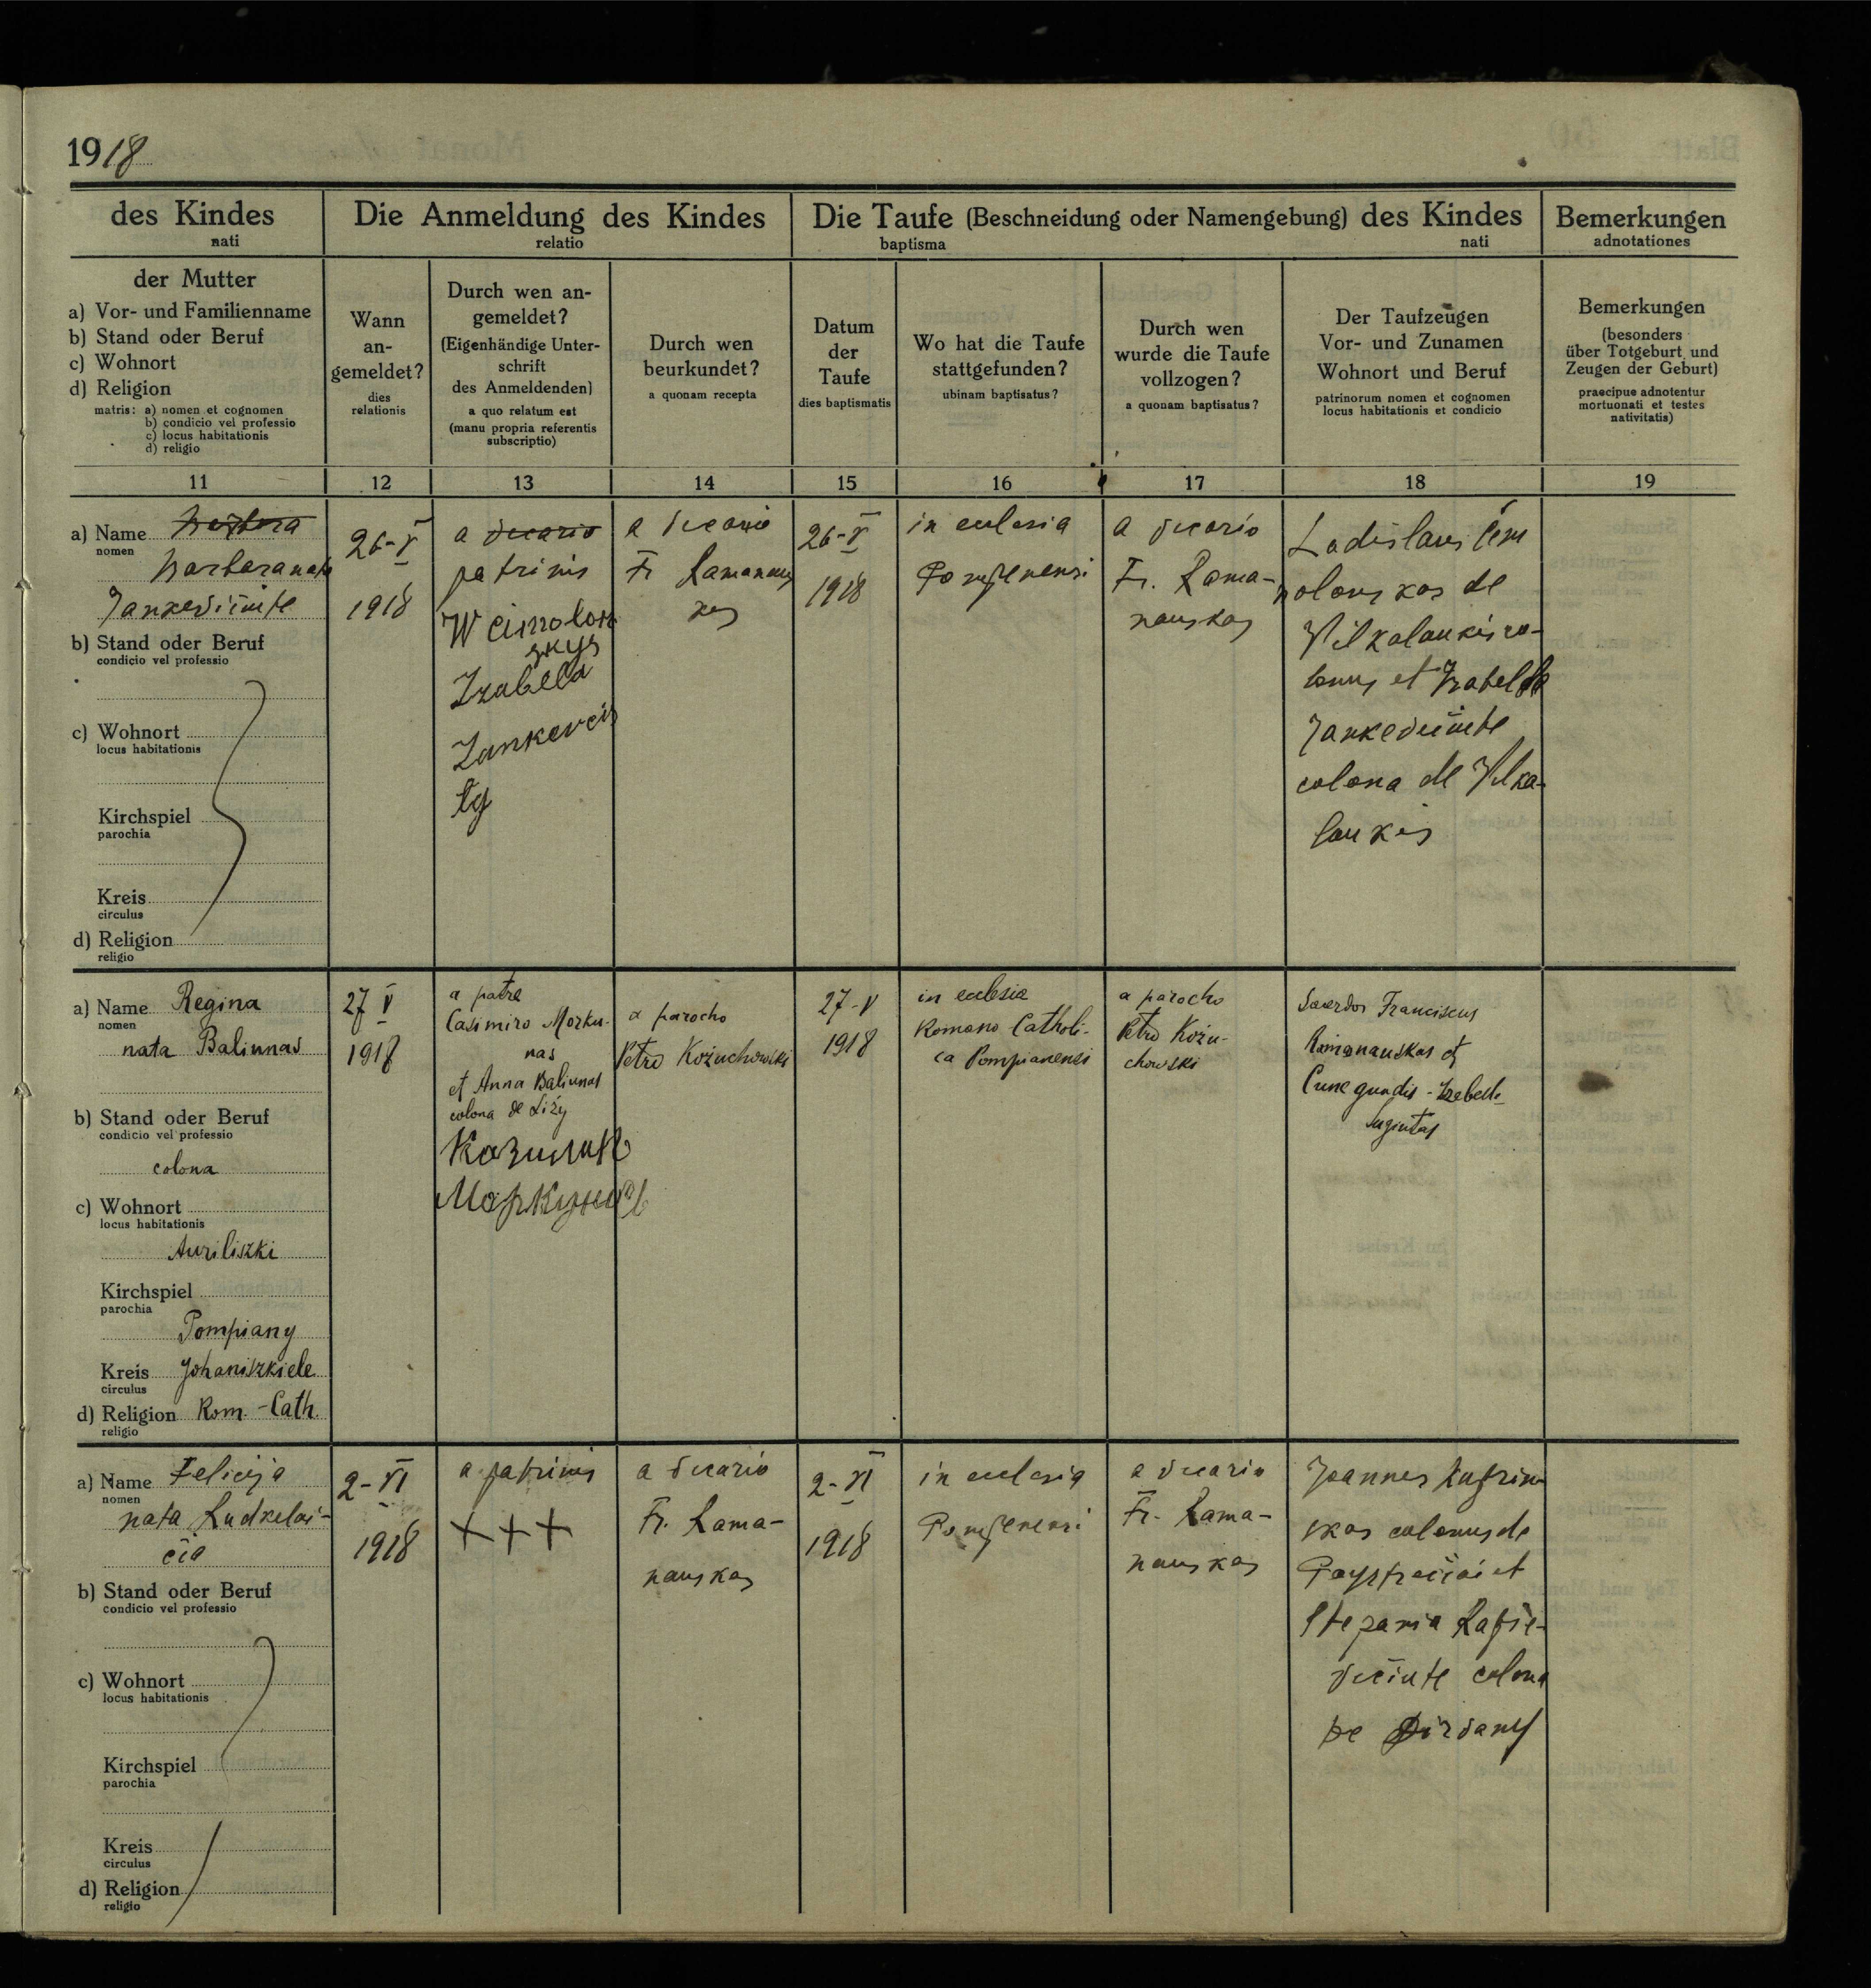 1918
des Kindes
nati
Die Anmeldung des Kindes
relatio
Die Taufe (Beschneidung oder Namengebung) des Kindes
baptisma nati
Bemerkungen
adnotationes
der Mutter
a) Vor- und Familienname
b) Stand oder Beruf
c) Wohnort
d) Religion
matris: a) nomen et cognomen
b) condicio vel professio
c) locus habitationis
d) religio
Wann
an-
gemeldet?
dies
relationis
Durch wen an-
gemeldet?
(Eigenhändige Unter-
schrift
des Anmeldenden)
a quo relatum est
(manu propria referentis
subscriptio)
Durch wen
beurkundet?
a quonam recepta
Datum
der
Taufe
dies baptismatis
Wo hat die Taufe
stattgefunden?
ubinam baptisatus?
Durch wen
wurde die Taufe
vollzogen?
a quonam baptisatus?
Der Taufzeugen
Vor- und Zunamen
Wohnort und Beruf
patrinorum nomen et cognomen
locus habitationis et condicio
Bemerkungen
(besonders
über Totgeburt und
Zeugen der Geburt)
praecipue adnotentur
mortuonati et testes
nativitatis)
11 12 13 14 15 16 17 18 19
a) Name
nomen
Barbara nata
b) Stand oder Beruf
condicio vel professio
c) Wohnort
locus habitationis
Kirchspiel
parochia
Kreis
circulus
d) Religion
religio
26-V
1918
a vicario
patrinis
Izabela
a vicario
Fr Ramanaus
kas
26-V
1918
in eclesia
a vicario
Fr. Rama-
nauskas
Ladislaus Cim
olonskas de
Vilkalaukis co-
lonus et Izabella
colona de Vilka-
laukis
a) Name Regina
nomen
nata Baliunas
b) Stand oder Beruf
condicio vel professio
colona
c) Wohnort
locus habitationis
Auriliszki
Kirchspiel
parochia
Pompiany
Kreis Johaniszkiele
circulus
d) Religion Rom.-Cath.
religio
27 V
1918
a patre
Casimiro Morku-
nas
et Anna Baliunas
colona de Liży
Казимир
a parocho
Petro Kożuchowski
27-V
1918
in eclesia
Romano Catholi-
ca Pompianensi
a parocho
Petro Kożu-
chowski
Sacerdos Franciscus
Ramanauskas et
Cunegundis-Izebella
a) Name Felicija
nomen
nata
b) Stand oder Beruf
condicio vel professio
c) Wohnort
locus habitationis
Kirchspiel
parochia
Kreis
circulus
d) Religion
religio
2-VI
1918
a patrinis
+++
a vicario
Fr. Rama-
nauskas
2-VI
1918
in eclesia
a vicario
Fr. Rama-
nauskas
Joannes
colonus de
et
colona
de